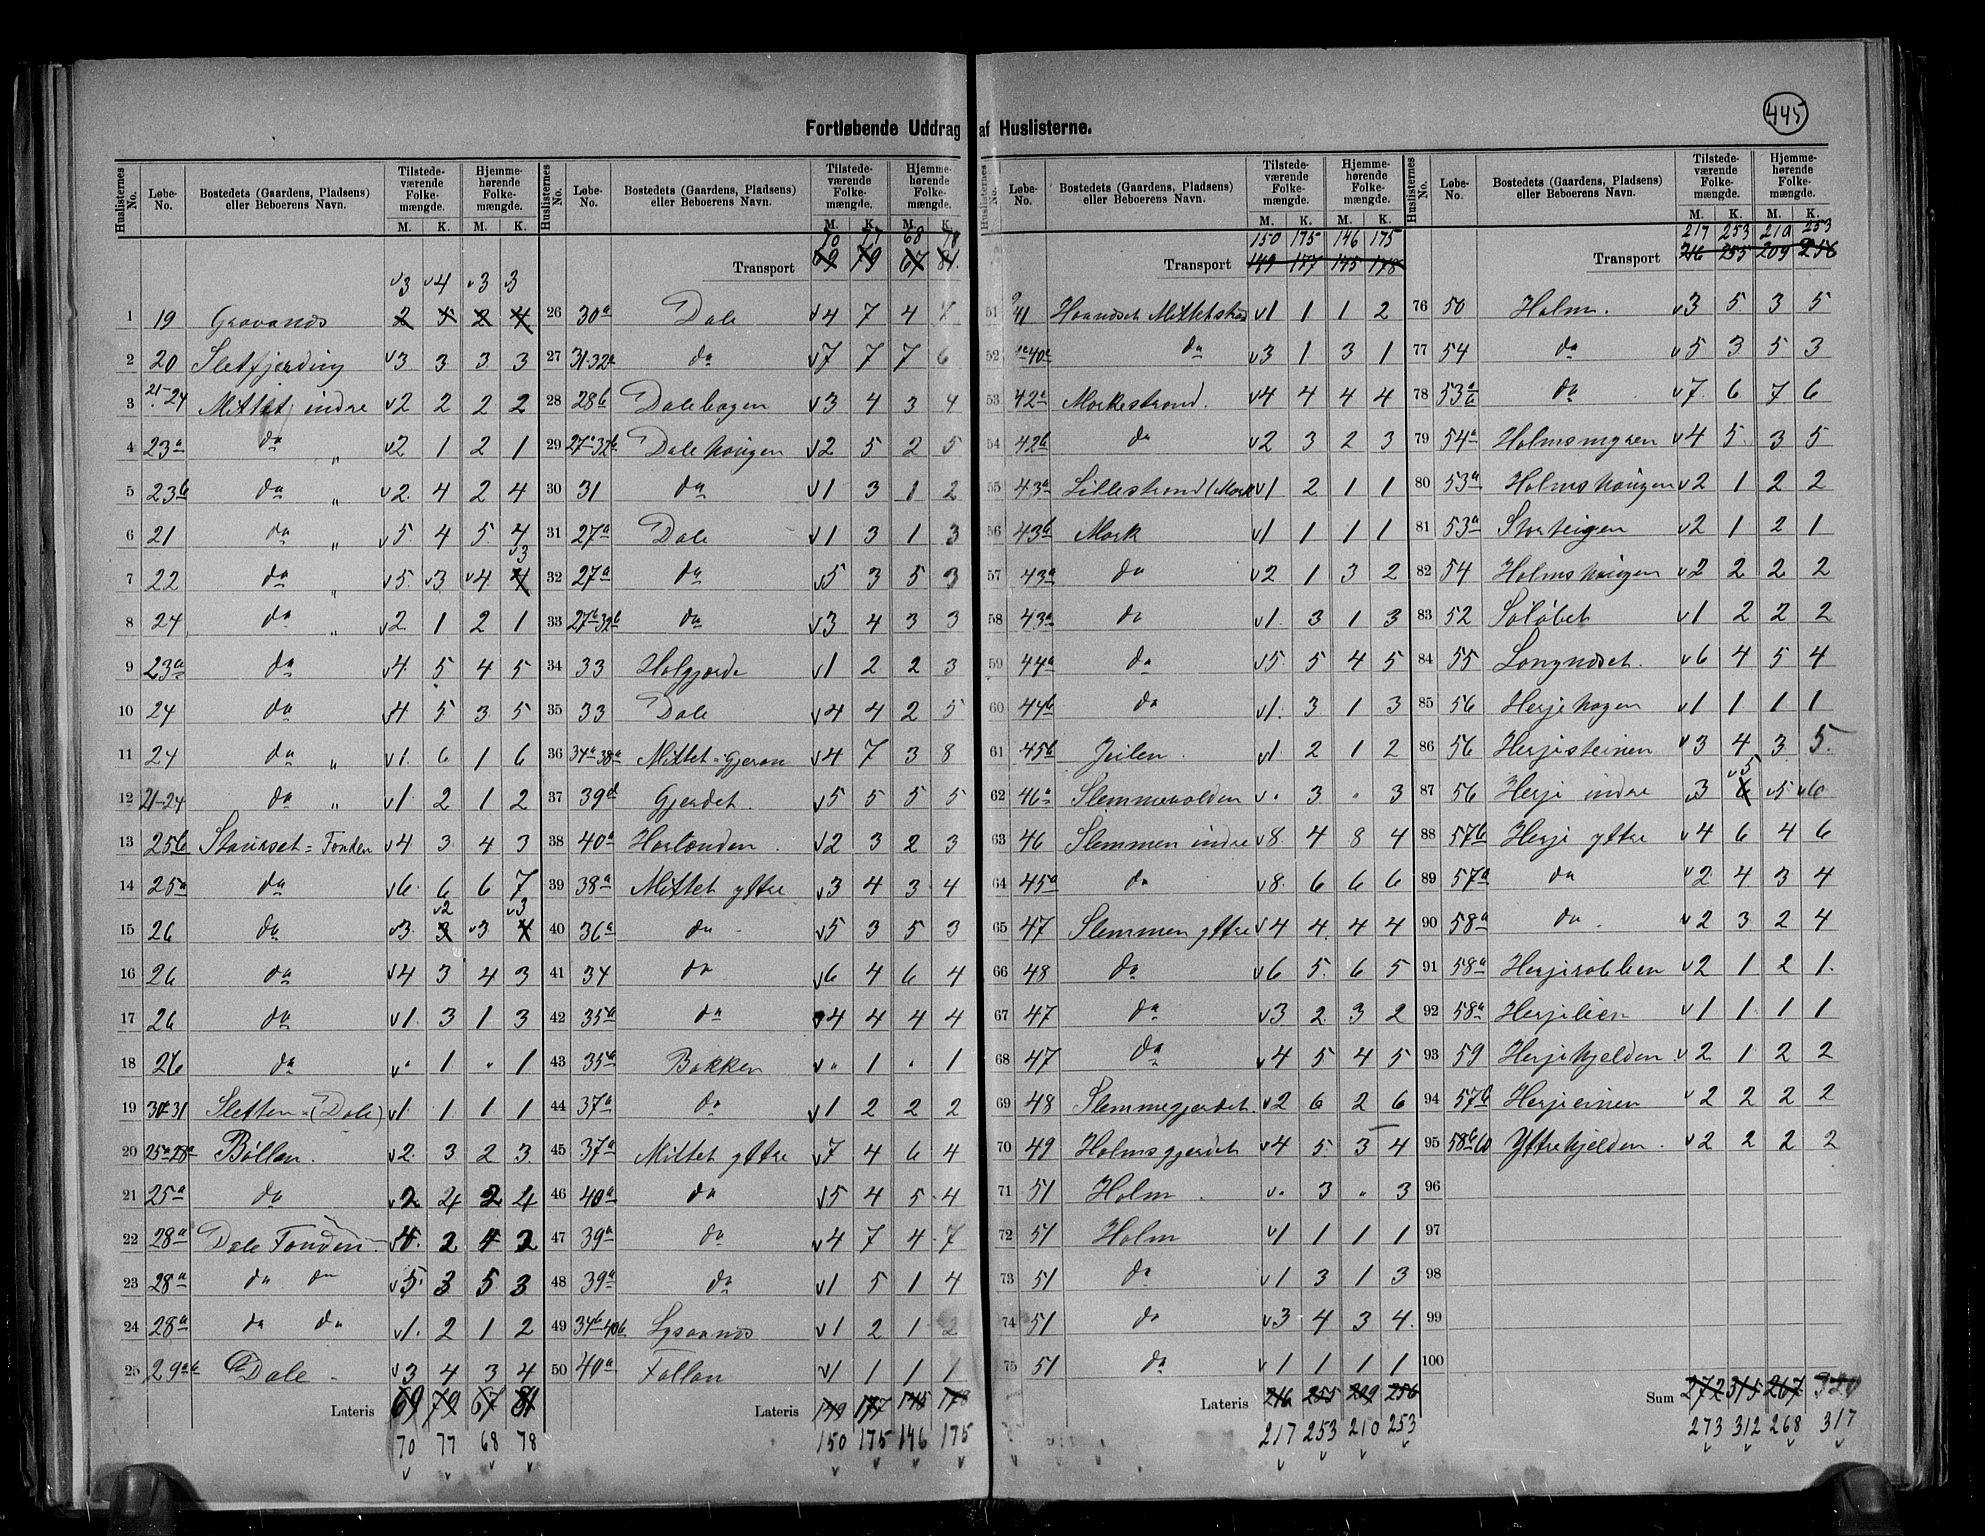 445
Fortløbende Uddrag af Huslisterne.
Huslisternes No. | Løbe-No. | Bostedets (Gaardens, Pladsens) eller Beboerens Navn. | Tilstedeværende Folkemængde. M. K. | Hjemmehørende Folkemængde. M. K.
3 4 3 3
1 19 Gravanes 2 5 2 4
2 20 Sletfjerding 3 3 3 3
3 21-24 Mittet indre 2 2 2 2
4 23a do " 2 1 2 1
5 23b do " 2 4 2 4
6 21 do " 5 4 5 4
3
7 22 do " 5 3 4 4
8 24 do " 2 1 2 1
9 23a do 4 5 4 5
10 24 do 4 5 3 5
11 24 do " 1 6 1 6
12 21-24 do " 1 2 1 2
13 25b Staurset=Fonden 4 3 4 3
14 25a do 6 6 6 7
2 3
15 26 do 3 3 3 4
16 26 do 4 3 4 3
17 26 do 1 3 1 3
18 26 do " 1 " 1
19 Sletten (Dale) 1 1 1 1
20 25a-28a Bøllan. 2 3 2 3
21 25a do 2 4 2 4
22 28a Dale Fonden 4 2 4 2
23 28a do do 5 3 5 3
24 28a do do 1 2 1 2
25 29 Dale 3 4 3 4
Lateris 69 79 67 81
70 77 68 78
Huslisternes No. | Løbe-No. | Bostedets (Gaardens, Pladsens) eller Beboerens Navn. | Tilstedeværende Folkemængde. M. K. | Hjemmehørende Folkemængde. M. K.
70 77 68 78
Transport 69 79 67 81.
26 30a Dale 4 7 4 7
27 31-32a do 7 7 7 6
28 28b Dalehagen 3 4 3 4
29 27a-32b Dalehaugen 2 5 2 5
30 31 do 1 3 1 2
31 27a Dale 1 3 1 3
32 27a do 5 3 5 3
33 27b-32b do 3 4 3 3
34 33 Holgjerde 1 2 2 3
35 33 Dale 4 4 2 5
36 34a-38a Mittet=Gjeran 4 7 3 8
37 39d Gjerdet. 5 5 5 5
38 40a Horlanden 2 3 2 3
39 38a Mittet yttre 3 4 3 4
40 36a do 5 3 5 3
41 34 do 6 4 6 4
42 35a do 4 4 4 4
43 35b Bakken " 1 " 1
44 37a do 1 2 2 2
45 37a Mittet yttre 7 4 6 4
46 40a do 5 4 5 4
47 39a do 4 7 4 7
48 39a do 1 5 1 4
49 34b-40b Lysaanes 1 2 1 2
50 40a Follan 1 1 1 1
Lateris 149 177 145 178
150 175 146 175
Huslisternes No. | Løbe-No. | Bostedets (Gaardens, Pladsens) eller Beboerens Navn. | Tilstedeværende Folkemængde. M. K. | Hjemmehørende Folkemængde. M. K.
150 175 146 175
Transport 149 177 145 178
51 41 Haandset Mittetstrand 1 1 1 2
52 40a do 3 1 3 1
53 42a Morkestrand. 4 4 4 4
54 42b do 2 3 2 3
55 43a Lillestrand (Mork 1 2 1 1
56 43b Mork 1 1 1 1
57 43a do 2 1 3 2
58 43a do 1 3 1 3
59 44a do 5 5 4 5
60 44b do 1 3 1 3
61 45b Jeilen. 1 2 1 2
62 46a Slemmevolden " 3 " 3
63 46 Slemmen indre 8 4 8 4
64 45a do 8 6 6 6
65 47 Slemmen yttre 4 4 4 4
66 48 do 6 5 6 5
67 47 do 3 2 3 2
68 47 do 4 5 4 5
69 48 Slemmegjerdet. 2 6 2 6
70 49 Holmsgjerdet 4 5 3 4
71 51 Holm " 3 " 3
72 51 Holm 1 1 1 1
73 51 do 1 3 1 3
74 51 do 3 4 3 4
75 51 do 1 1 1 1
Lateris 216 255 209 256
217 253 210 253
Huslisternes No. | Løbe-No. | Bostedets (Gaardens, Pladsens) eller Beboerens Navn. | Tilstedeværende Folkemængde. M. K. | Hjemmehørende Folkemængde. M. K.
217 253 210 253
Transport 216 255 209 256
76 50 Holm. 3 5 3 5
77 54 do 5 3 5 3
78 53 do 7 6 7 6
79 54a Holmsmyren 4 5 3 5
80 53a Holmshaugen 2 1 2 2
81 53a Storteigen 2 1 2 1
82 54 Holmshaugen 2 2 2 2
83 52 Soløbet 1 2 2 2
84 55 Longneset. 6 4 5 4
85 56 Herjehagen 1 1 1 1
86 56 Herjesteinen 3 4 3 5
5
87 56 Herje indre 3 6 5 6
88 57b Herje yttre 4 6 4 6
89 57a do 2 4 3 4
90 58a do. 2 3 2 4
91 58a Herjerabben 2 1 2 1
92 58a Herjelien 1 1 1 1
93 59 Herjehjelden 2 1 2 2
94 57b Herjeeinen 2 2 2 2
95 58b60 Yttrehjelden. 2 2 2 2
96
97
98
99
100
Sum 272 315 267 320
273 312 268 317